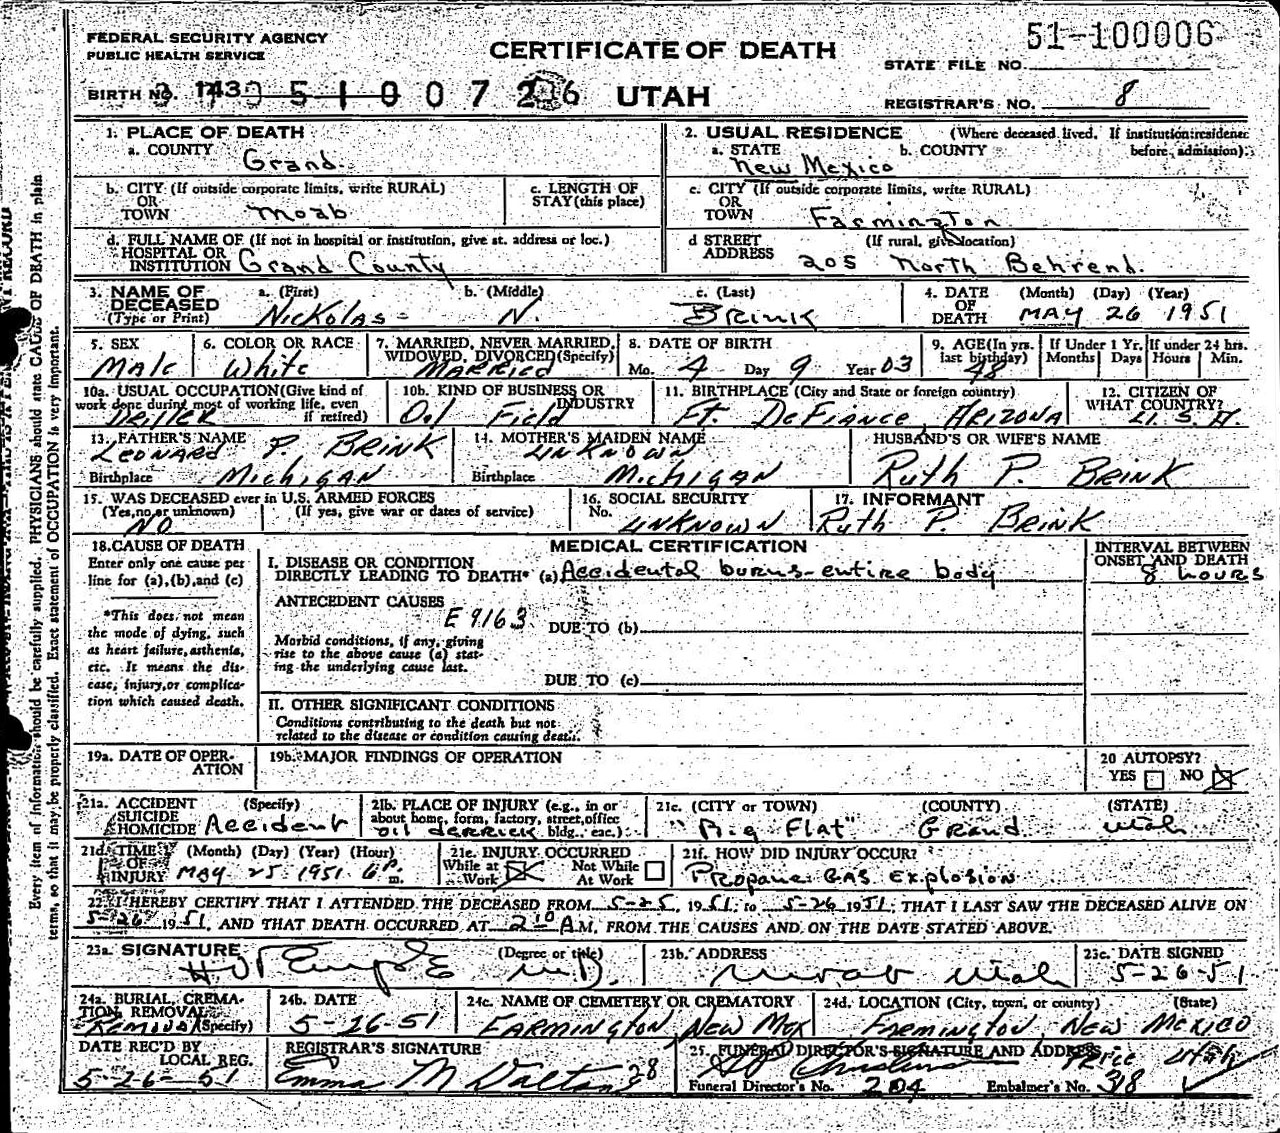 FEDERAL SECURITY AGENCY
PUBLIC HEALTH SERVICE
CERTIFICATE OF DEATH
51-100006
STATE FILE NO.
BIRTH NO.
UTAH
REGISTRAR'S NO. 8
1. PLACE OF DEATH
a. COUNTY Grand
2. USUAL RESIDENCE (Where deceased lived. If institution: residence before admission).
a. STATE New Mexico b. COUNTY
b. CITY (If outside corporate limits, write RURAL) OR TOWN Moab
c. LENGTH OF STAY (this place)
c. CITY (If outside corporate limits, write RURAL) OR TOWN Farmington
d. FULL NAME OF (If not in hospital or institution, give st. address or loc.) HOSPITAL OR INSTITUTION Grand County
d STREET ADDRESS (If rural, give location) 205 North Behrend.
3. NAME OF DECEASED (Type or Print)
a. (First) Nickolas b. (Middle) N. c. (Last) BRINK
4. DATE OF DEATH (Month) (Day) (Year) MAY 26 1951
5. SEX Male
6. COLOR OR RACE White
7. MARRIED, NEVER MARRIED, WIDOWED, DIVORCED (Specify) MARRIED
8. DATE OF BIRTH Mo. 4 Day 9 Year 03
9. AGE (In yrs. last birthday) 48
If Under 1 Yr. Months Days
If under 24 hrs. Hours Min.
10a. USUAL OCCUPATION (Give kind of work done during most of working life, even if retired) DRILLER
10b. KIND OF BUSINESS OR INDUSTRY Oil Field
11. BIRTHPLACE (City and State or foreign country) Ft. DeFiance, ARIZONA
12. CITIZEN OF WHAT COUNTRY? U.S.A.
13. FATHER'S NAME LEONARD P. BRINK
Birthplace MICHIGAN
14. MOTHER'S MAIDEN NAME UNKNOWN
Birthplace MICHIGAN
HUSBAND'S OR WIFE'S NAME
Ruth P. BRINK
15. WAS DECEASED ever in U.S. ARMED FORCES
(Yes, no, or unknown) NO (If yes, give war or dates of service)
16. SOCIAL SECURITY No. UNKNOWN
17. INFORMANT Ruth P. BRINK
18. CAUSE OF DEATH
Enter only one cause per line for (a), (b), and (c)
*This does not mean the mode of dying, such as heart failure, asthenia, etc. It means the disease, injury, or complication which caused death.
MEDICAL CERTIFICATION
I. DISEASE OR CONDITION DIRECTLY LEADING TO DEATH* (a) Accidental burns-entire body
INTERVAL BETWEEN ONSET AND DEATH
8 hours
ANTECEDENT CAUSES
E 916.3
DUE TO (b)
Morbid conditions, if any, giving rise to the above cause (a) stating the underlying cause last.
DUE TO (c)
II. OTHER SIGNIFICANT CONDITIONS
Conditions contributing to the death but not related to the disease or condition causing death.
19a. DATE OF OPERATION
19b. MAJOR FINDINGS OF OPERATION
20 AUTOPSY?
YES NO
21a. ACCIDENT SUICIDE HOMICIDE (Specify) Accident
21b. PLACE OF INJURY (e.g., in or about home, farm, factory, street, office bldg., etc.) oil derrick
21c. (CITY or TOWN) (COUNTY) (STATE)
"Big Flat" Grand Utah
21d. TIME OF INJURY (Month) (Day) (Year) (Hour) MAY 25 1951 6 P. m.
21e. INJURY OCCURRED
While at Work Not While At Work
21f. HOW DID INJURY OCCUR?
Propane GAS Explosion
22. I HEREBY CERTIFY THAT I ATTENDED THE DECEASED FROM 5-25, 1951, to 5-26 1951, THAT I LAST SAW THE DECEASED ALIVE ON
5-26 1951, AND THAT DEATH OCCURRED AT 2 10 A M, FROM THE CAUSES AND ON THE DATE STATED ABOVE.
23a. SIGNATURE (Degree or title) M.D.
23b. ADDRESS Moab Utah
23c. DATE SIGNED 5-26-51
24a. BURIAL, CREMATION, REMOVAL (Specify) Removal
24b. DATE 5-26-51
24c. NAME OF CEMETERY OR CREMATORY FARMINGTON, NEW MEX
24d. LOCATION (City, town, or county) (State) FARMINGTON, NEW MEXICO
DATE REC'D BY LOCAL REG. 5-26-51
REGISTRAR'S SIGNATURE Emma M Walton
25. FUNERAL DIRECTOR'S SIGNATURE AND ADDRESS Price Utah
Funeral Director's No. 204 Embalmer's No. 318
Every item of information should be carefully supplied. PHYSICIANS should state CAUSE OF DEATH in plain
terms, so that it may be properly classified. Exact statement of OCCUPATION is very important.